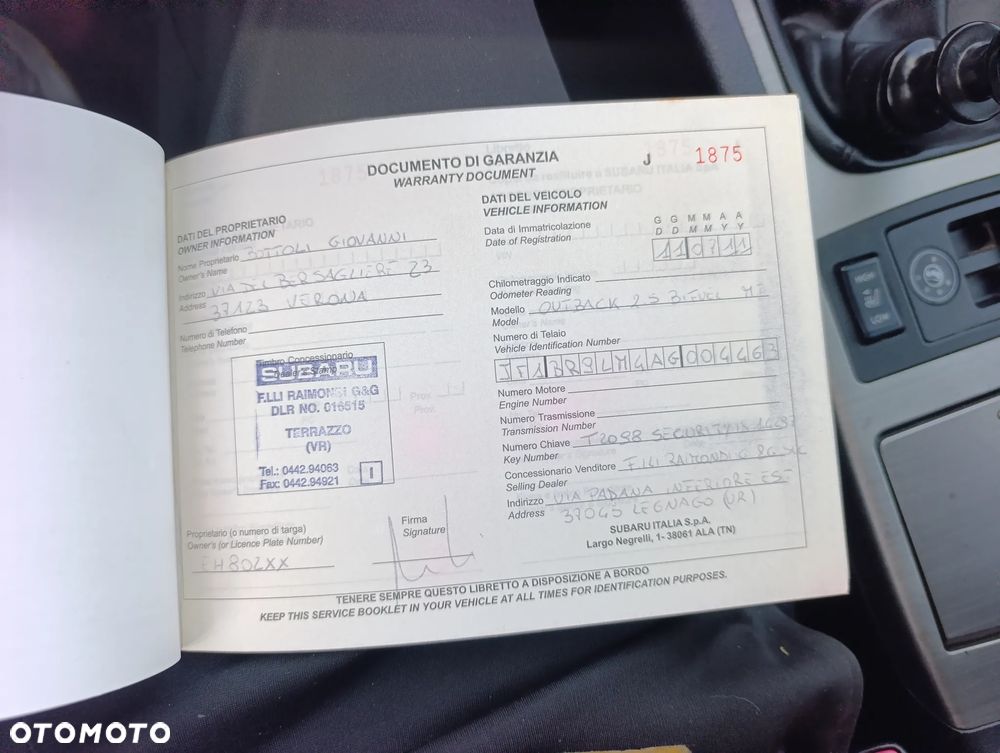 DOCUMENTO DI GARANZIA
WARRANTY DOCUMENT
J 1875
DATI DEL PROPRIETARIO
OWNER INFORMATION
Nome Proprietario BOTTOLI GIOVANNI
Owner's Name
Indirizzo VIA DEL BERSAGLIERE 23
Address 37123 VERONA
Numero di Telefono
Telephone Number
Timbro Concessionario
Dealer's Stamp
SUBARU
F.LLI RAIMONDI G&G
DLR NO. 016515
TERRAZZO
(VR)
Tel.: 0442.94063
Fax: 0442.94921
I
Proprietario (o numero di targa)
Owner's (or Licence Plate Number)
EH802XX
Firma
Signature
DATI DEL VEICOLO
VEHICLE INFORMATION
Data di Immatricolazione
Date of Registration
G G M M A A
D D M M Y Y
110711
Chilometraggio Indicato
Odometer Reading
Modello OUTBACK 2.5 BIFUEL
Model
Numero di Telaio
Vehicle Identification Number
JF1BR9LM4AG004463
Numero Motore
Engine Number
Numero Trasmissione
Transmission Number
Numero Chiave T2098 SECURITY
Key Number
Concessionario Venditore F.LLI RAIMONDI G &G SNC
Selling Dealer
Indirizzo VIA PADANA INFERIORE EST
Address 37045 LEGNAGO (VR)
SUBARU ITALIA S.p.A.
Largo Negrelli, 1- 38061 ALA (TN)
TENERE SEMPRE QUESTO LIBRETTO A DISPOSIZIONE A BORDO
KEEP THIS SERVICE BOOKLET IN YOUR VEHICLE AT ALL TIMES FOR IDENTIFICATION PURPOSES.
HIGH
LOW
OTOMOTO